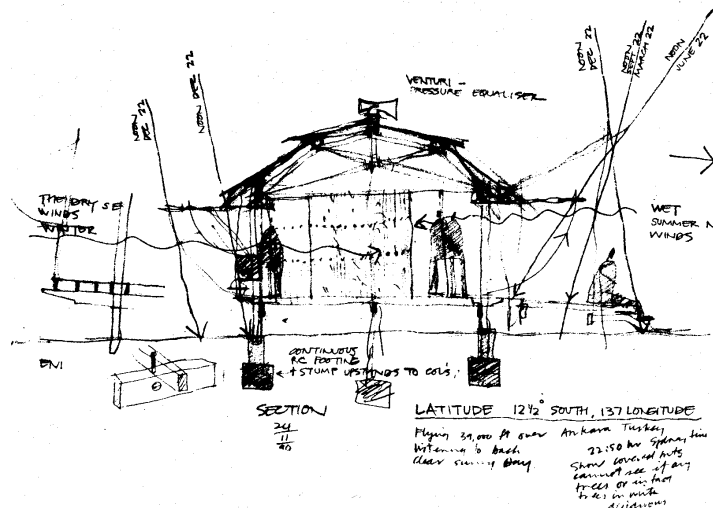 NOON DEC 22
NOON DEC 22
VENTURI -
PRESSURE EQUALISER
NOON
DEC 22
NOON
SEPT 22
MARCH 22
NOON
JUNE 22
THE DRY SE
WINDS
WINTER
WET
SUMMER N
WINDS
ENI
CONTINUOUS
RC FOOTING
+ STUMP UPSTANDS TO COL'S.
SECTION
24
11
90
LATITUDE 12½° SOUTH, 137 LONGITUDE
Flying 39,000 ft over Ankara Turkey
listening to Bach 22:50 hr Sydney time
clear sunny day
Snow covered huts
cannot see if any
trees or in fact
trees in white